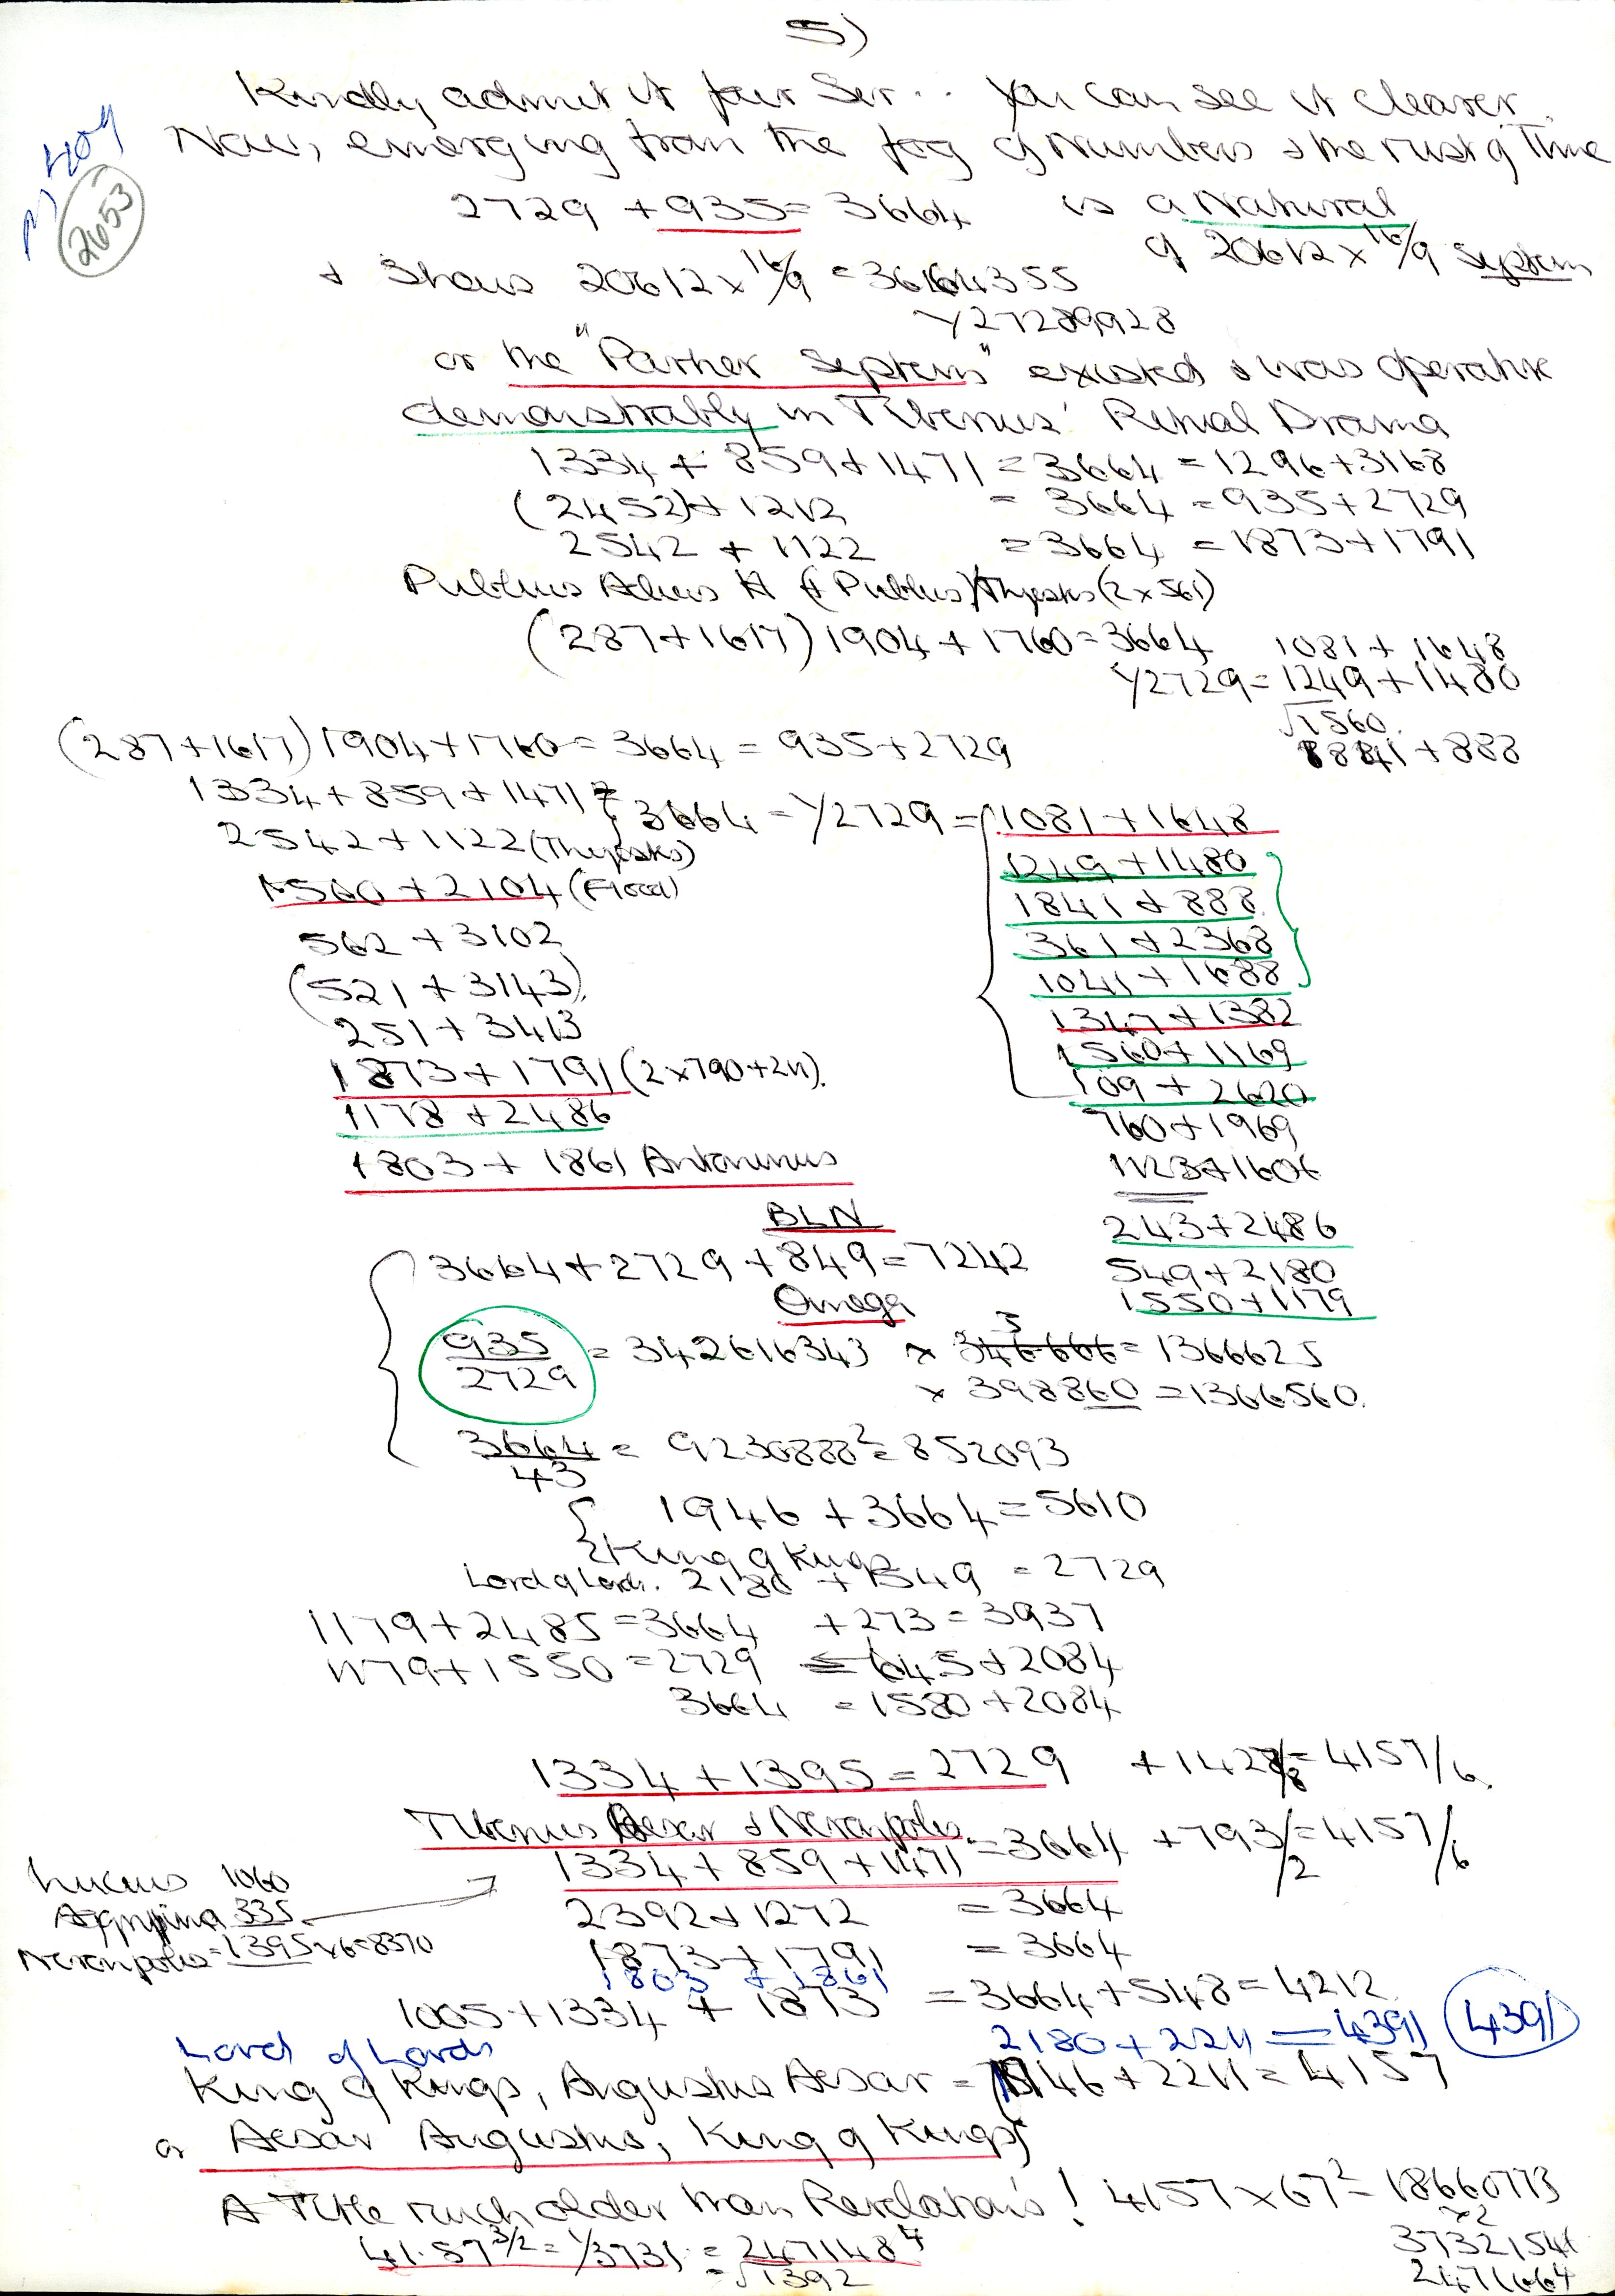 5)
Kindly admit it fair Sir.. You can see it clearer
Now, emerging from the fog of Numbers & the rust of Time
2653
2729 + 935 = 3664 is a Natural
of 20612 x 16/9 System
& Shows 20612 x 16/9 = 3664355
1/27289928
or the "Parker System" existed & was operative
demonstrably in Tiberius' Ritual Drama
1334 + 859 + 1471 = 3664 = 1296 + 3168
(2452) + 1212 = 3664 = 935 + 2729
2542 + 1122 = 3664 = 1873 + 1791
Publius Aelius H (+ Publius) / Thyestes (2 x 561)
(287 + 1617) 1904 + 1760 = 3664 1081 + 1648
1/2729 = 1249 + 1480
√1560
1841 + 888
(287 + 1617) 1904 + 1760 = 3664 = 935 + 2729
1334 + 859 + 1471 = 3664 = 1/2729 = 1081 + 1648
2542 + 1122 (Thyestes)
1249 + 1480
1560 + 2104 (Flood) 1841 + 888
562 + 3102 361 + 2368
(521 + 3143) 1041 + 1688
251 + 3413 1347 + 1382
1873 + 1791 (2 x 790 + 211). 1560 + 1169
1178 + 2486 109 + 2620
760 + 1969
1803 + 1861 Antoninus 1123 + 1606
BLN 243 + 2486
3664 + 2729 + 849 = 7242 549 + 2180
Omega 1550 + 1179
935/2729 = 342616343 x 346666 = 1366625
x 398860 = 1366560.
3664/43 = 9230888² = 852093
1946 + 3664 = 5610
King of Kings
Lord of Lords. 2180 + 549 = 2729
1179 + 2485 = 3664 + 273 = 3937
1179 + 1550 = 2729 = 645 + 2084
3664 = 1580 + 2084
1334 + 1395 = 2729 + 1427/8 = 4157/6.
Tiberius Aesar & Neronpolis
1334 + 859 + 1471 = 3664 + 793/2 = 4157/6
Lucius 1060
Agrippina 335
Neronpolis = 1395 x 6 = 8370
2392 + 1272 = 3664
1873 + 1791 = 3664
1803 + 1861
1005 + 1334 + 1873 = 3664 + 548 = 4212
Lord of Lords 2180 + 2211 = 4391 4391
King of Kings, Augustus Aesar = 1946 + 2211 = 4157
or Aesar Augustus, King of Kings
A Title much older than Revelation's! 4157 x 67² = 18660773
x2
37321546
41.57^3/2 = 1/3731 = 2471484
= √1392
2471664